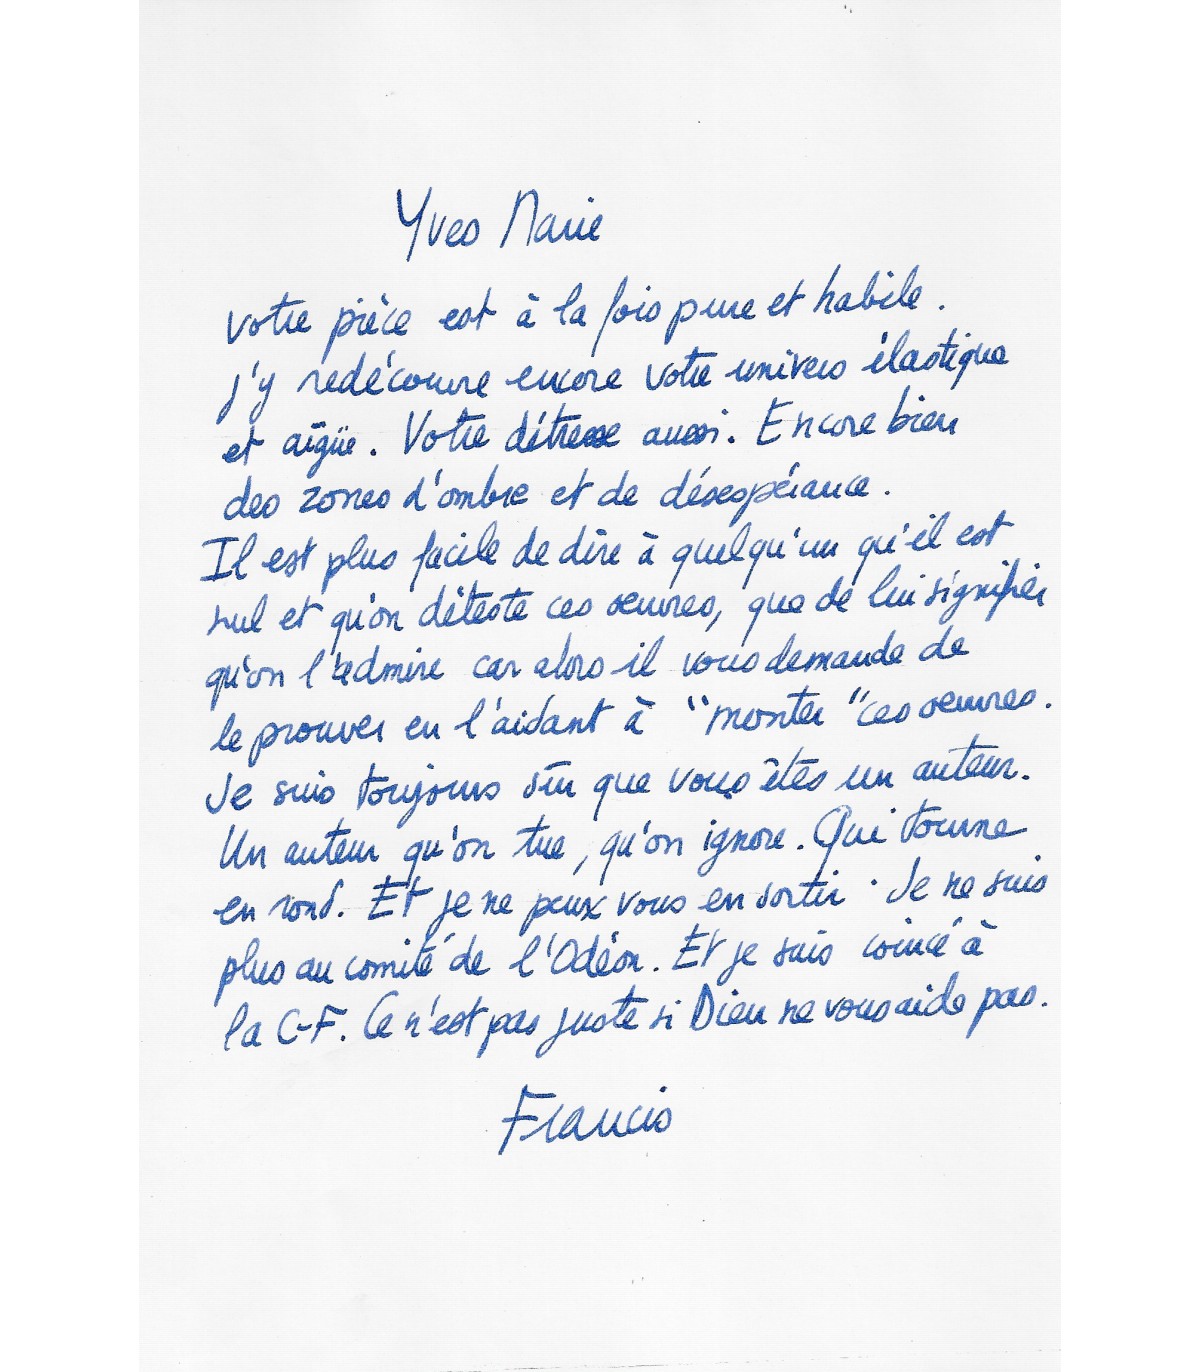 Yves Marie
votre pièce est à la fois pure et habile.
j'y redécouvre encore votre univers élastique
et aigüe. Votre détresse aussi. Encore bien
des zones d'ombre et de désespérance.
Il est plus facile de dire à quelqu'un qu'il est
nul et qu'on déteste ces oeuvres, que de lui signifier
qu'on l'admire car alors il vous demande de
le prouver en l'aidant à "monter" ces oeuvres.
Je suis toujours sûr que vous êtes un auteur.
Un auteur qu'on tue, qu'on ignore. Qui tourne
en rond. Et je ne peux vous en sortir. Je ne suis
plus au comité de l'Odéon. Et je suis coincé à
la C-F. Ce n'est pas juste si Dieu ne vous aide pas.
Francis